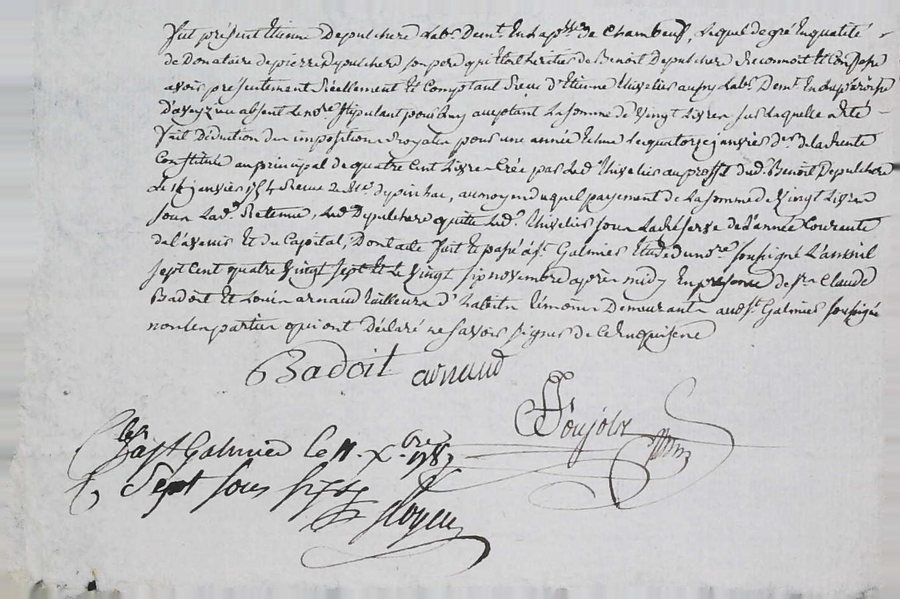 fut présent Etienne Depulchere Labr Demt En La psse de Chambeuf, Lequel de gré En qualité
de Donataire de pierre Depulchere son pere qui Etoit heritier de Benoit Depulchere Reconnoit Et Confesse
avoir presentement Réellement Et Comptant Receu d'Etienne Thivelier aussy Labr Demt En la psse
d'aveyzieu absent Le nore Stipulant pour Luy au payant La somme de Vingt Livres sur Laquelle a été
fait Déduction des impositions Royales pour une année Echue Le quatorze janvier der de la Rente
Constituée au principal de quatre Cent Livres Créé par Led Thivelier au proffit dud Benoit Depulchere
Le 14 janvier Reçue Me depinhac, au moyen duquel payement de La somme de Vingt Livres
sous Lade Retenue, Led Depulchere quitte Led Thivelier sous La Réserve de L'année Courante
de L'avenir Et du Capital, Dont acte fait Et passé à St Galmier Etude du nore soussigné L'an mil
sept Cent quatre Vingt Sept Et Le Vingt six novembre après midy En présence de Sr Claude
Badoit Et Louis arnaud Tailleurs d'habits Témoins Demeurants aud St Galmier soussignés
non Les parties qui ont déclaré ne savoir signer de Ce Enquises
Badoit arnaud
Ponjols
à St Galmier le 11 Xbre 1787
Sept sous six